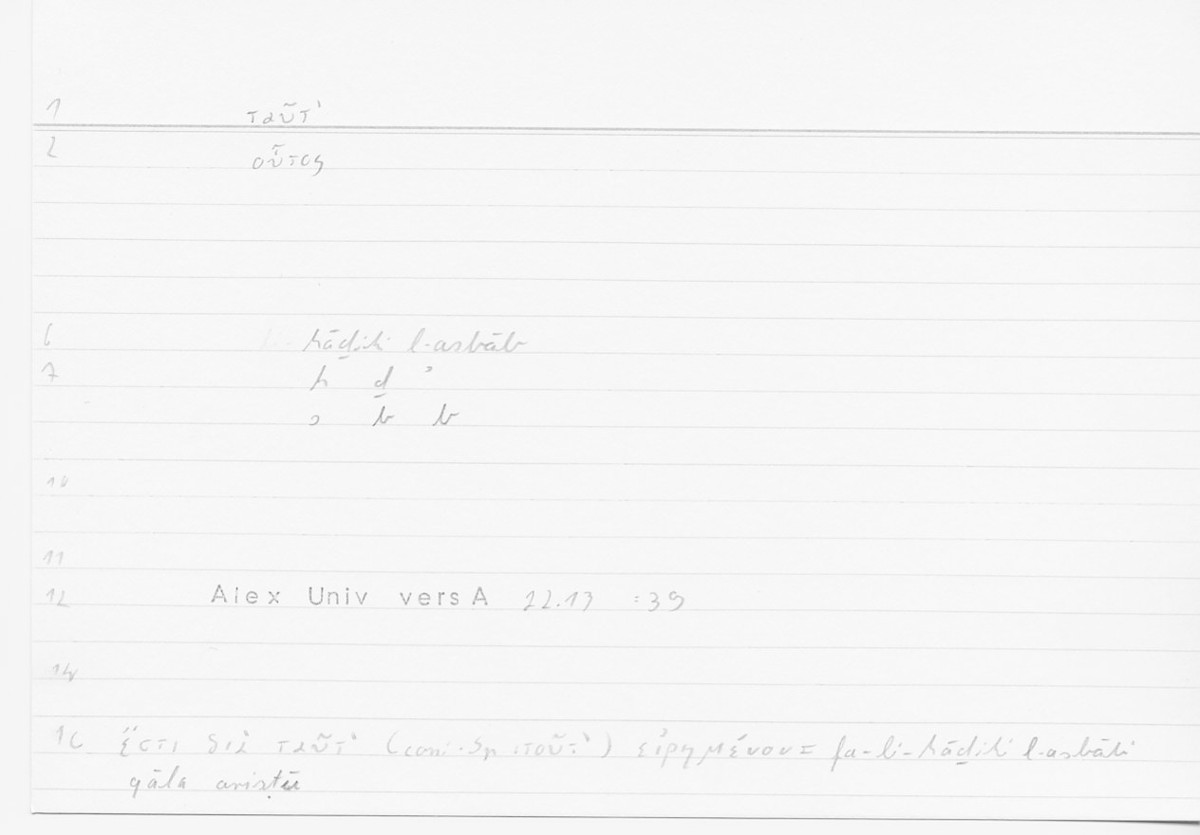 1 ταῦτ'
2 οὗτος
6 hāḏihi l-asbāb
7 h ḏ ʾ
ʾ b b
10
11
12 Alex Univ vers A 22.13 :39
14
16 ἔστι διὰ ταῦτ' (coni. τοῦτ') εἰρημένον = fa-li-hāḏihi l-asbābi
qāla arisṭū